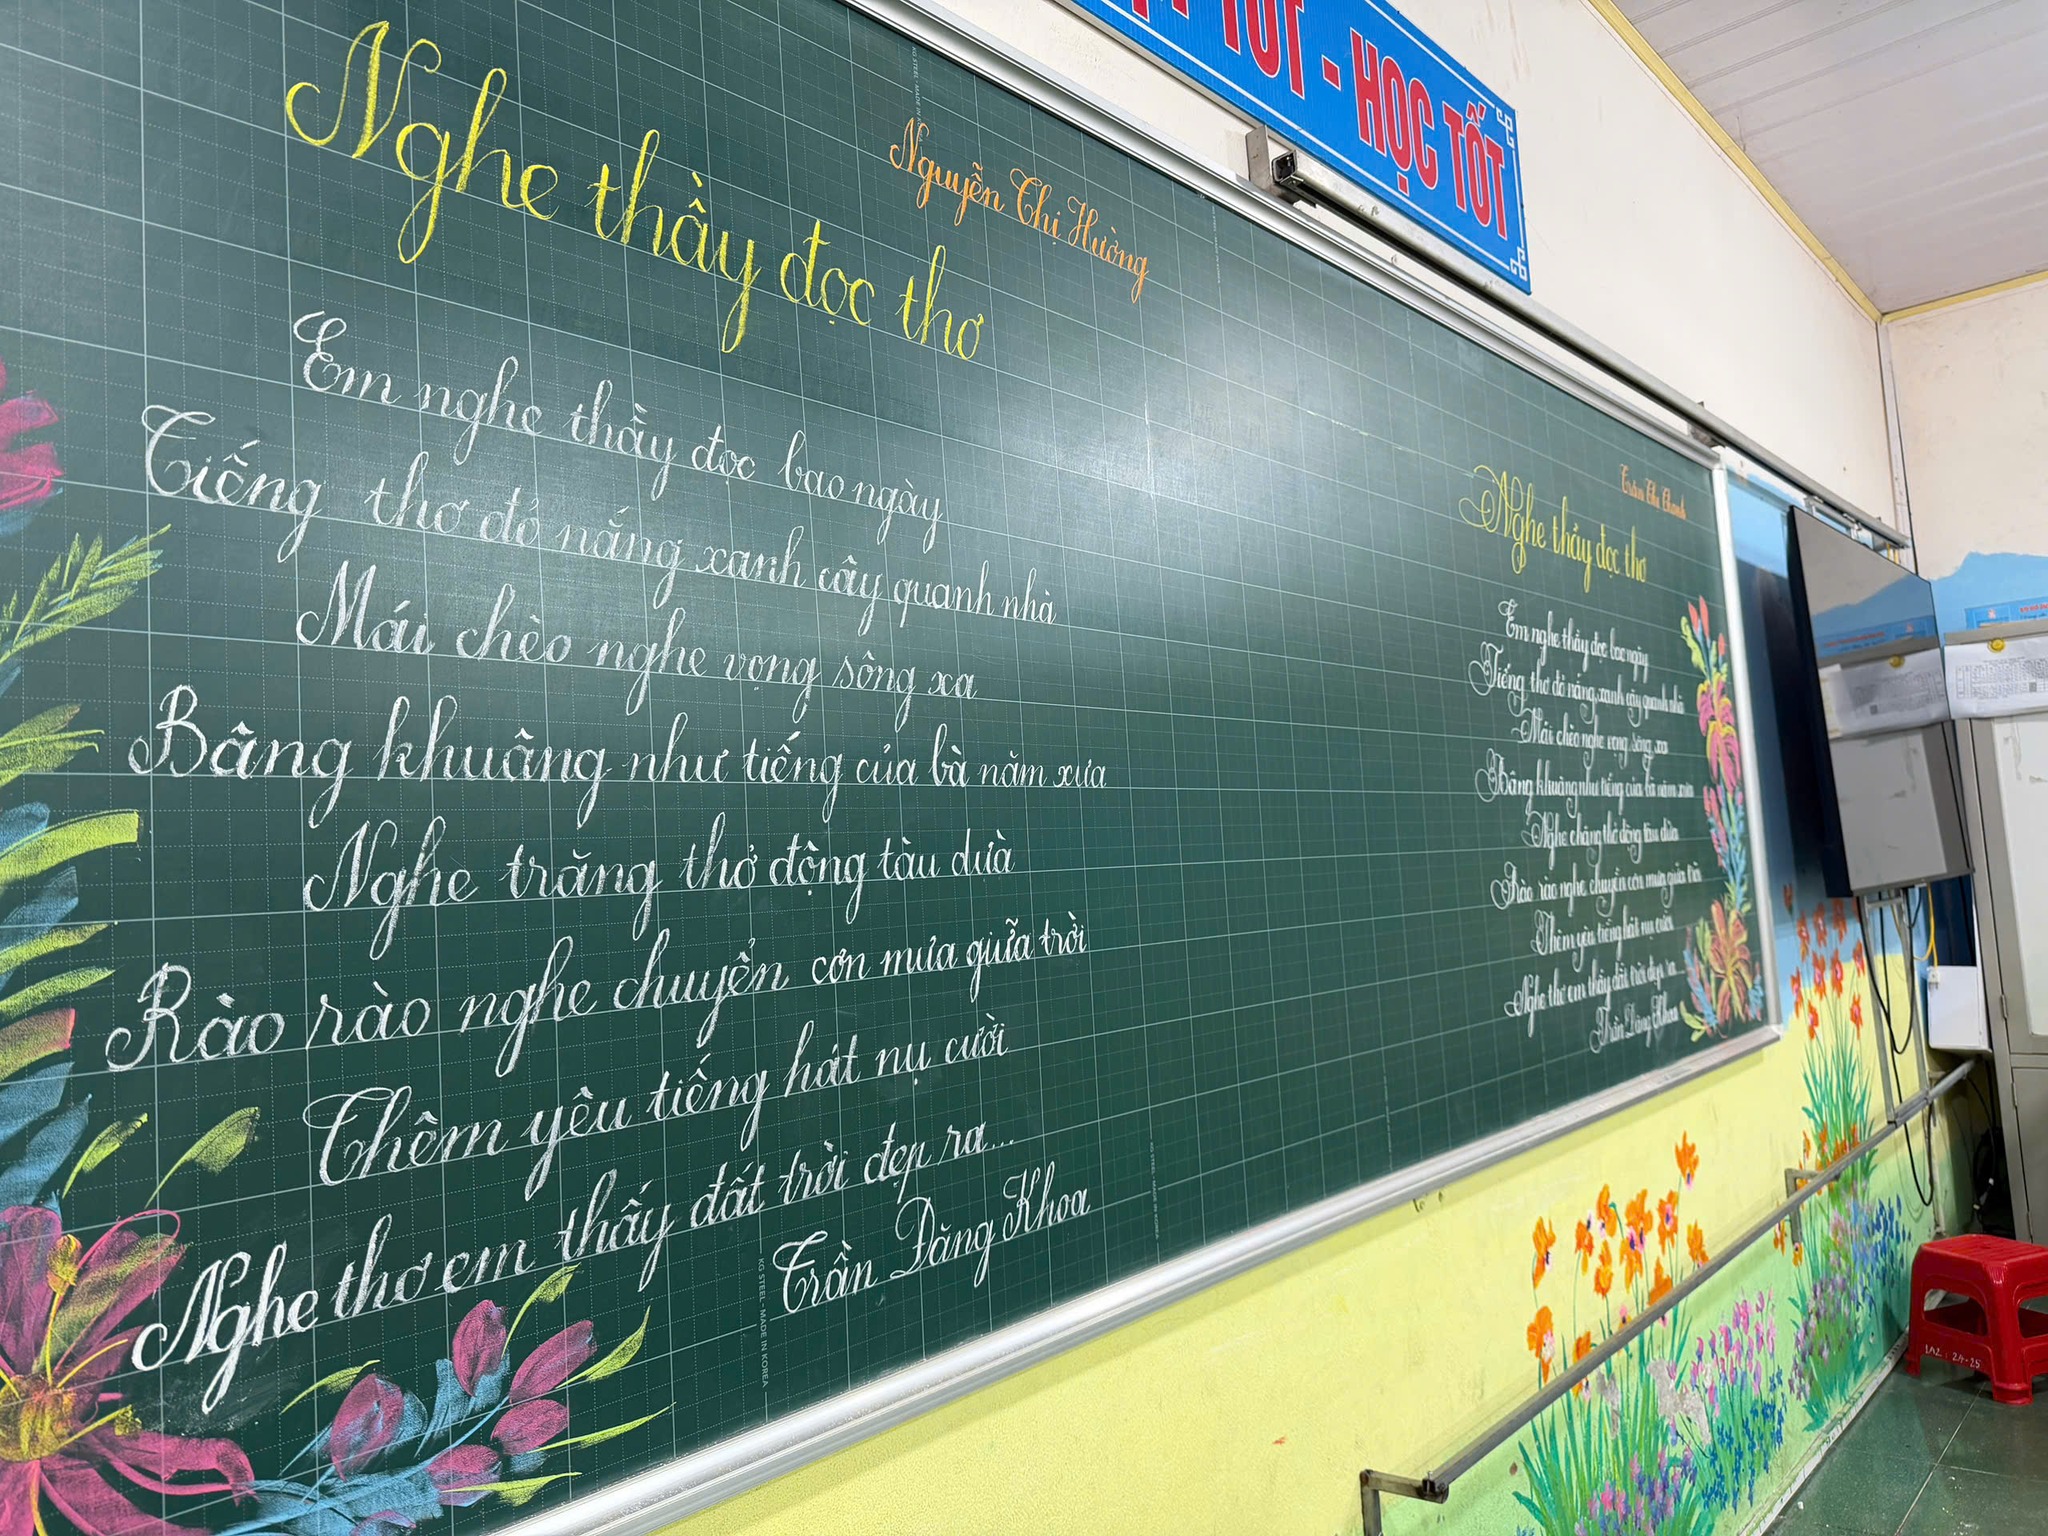 TỐT - HỌC TỐT
Nguyễn Thị Hường
Nghe thầy đọc thơ
Em nghe thầy đọc bao ngày
Tiếng thơ đỏ nắng xanh cây quanh nhà
Mái chèo nghe vọng sông xa
Bâng khuâng như tiếng của bà năm xưa
Nghe trăng thở động tàu dừa
Rào rào nghe chuyển cơn mưa giữa trời
Thêm yêu tiếng hát nụ cười
Nghe thơ em thấy đất trời đẹp ra...
Trần Đăng Khoa
KG STEEL - MADE IN KOREA
KG STEEL - MADE IN KOREA
KG STEEL - MADE IN KOREA
Nghe thầy đọc thơ
Em nghe thầy đọc bao ngày
Tiếng thơ đỏ nắng xanh cây quanh nhà
Mái chèo nghe vọng sông xa
Bâng khuâng như tiếng của bà năm xưa
Nghe trăng thở động tàu dừa
Rào rào nghe chuyển cơn mưa giữa trời
Thêm yêu tiếng hát nụ cười
Nghe thơ em thấy đất trời đẹp ra
Trần Đăng Khoa